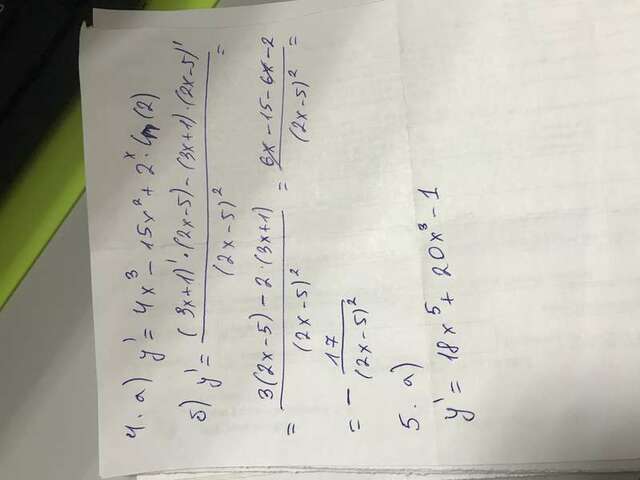 4. а) y' = 4x³ - 15x² + 2ˣ · ln(2)
б) y' = ((3x+1)' · (2x-5) - (3x+1) · (2x-5)') / (2x-5)² =
= (3(2x-5) - 2 · (3x+1)) / (2x-5)² = (6x - 15 - 6x - 2) / (2x-5)² =
= - 17 / (2x-5)²
5. а)
y' = 18x⁵ + 20x³ - 1